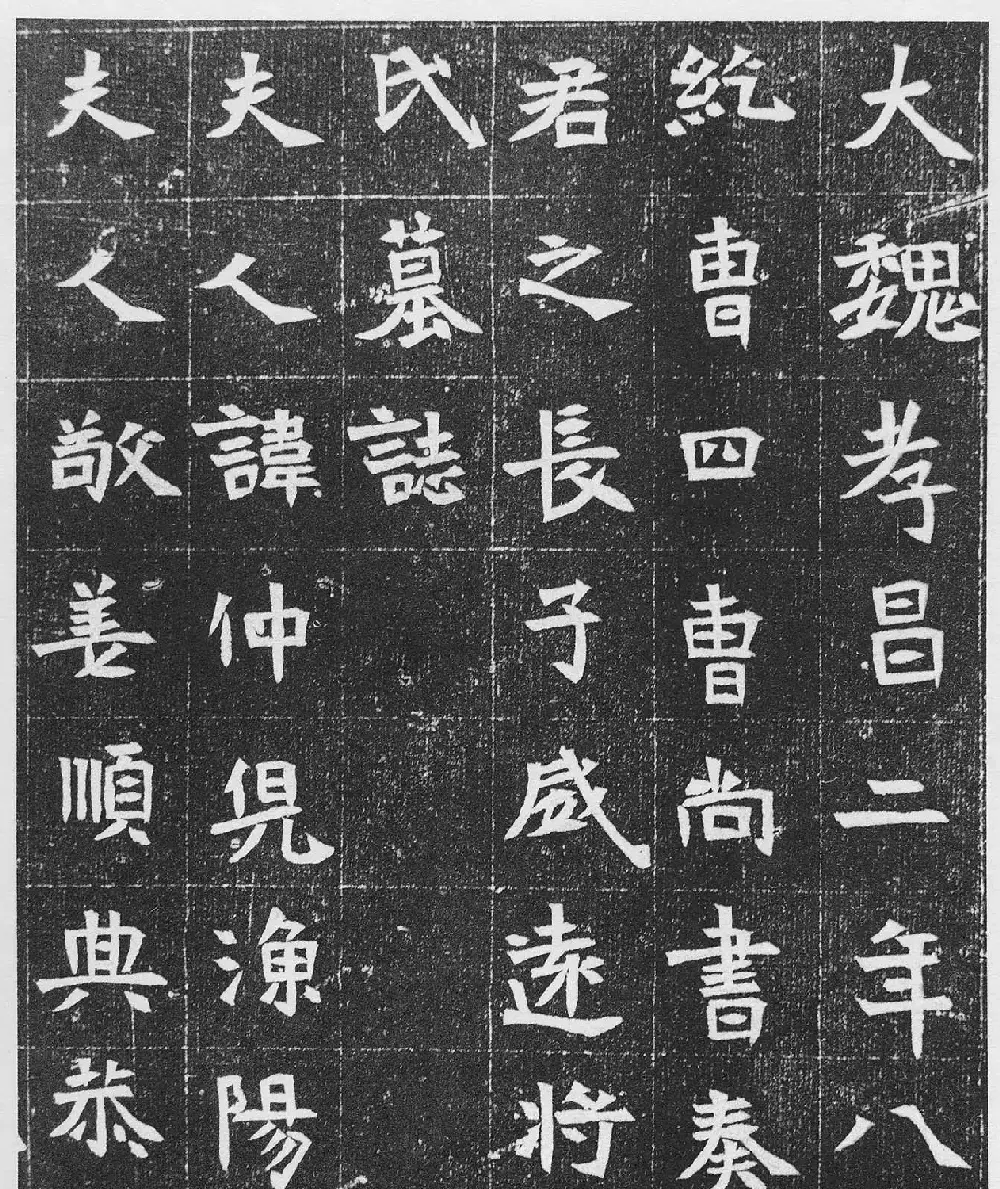 大魏孝昌二年八
紇曺四曺尚書奏
君之長子威遠將
氏墓誌
夫人諱仲兒漁陽
夫人敬善順典恭